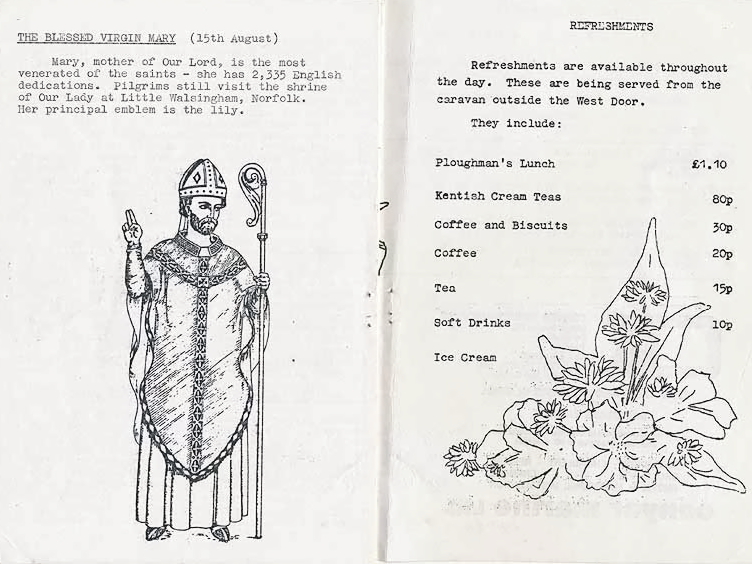 THE BLESSED VIRGIN MARY (15th August)
Mary, mother of Our Lord, is the most
venerated of the saints - she has 2,335 English
dedications. Pilgrims still visit the shrine
of Our Lady at Little Walsingham, Norfolk.
Her principal emblem is the lily.
REFRESHMENTS
Refreshments are available throughout
the day. These are being served from the
caravan outside the West Door.
They include:
Ploughman's Lunch £1.10
Kentish Cream Teas 80p
Coffee and Biscuits 30p
Coffee 20p
Tea 15p
Soft Drinks 10p
Ice Cream